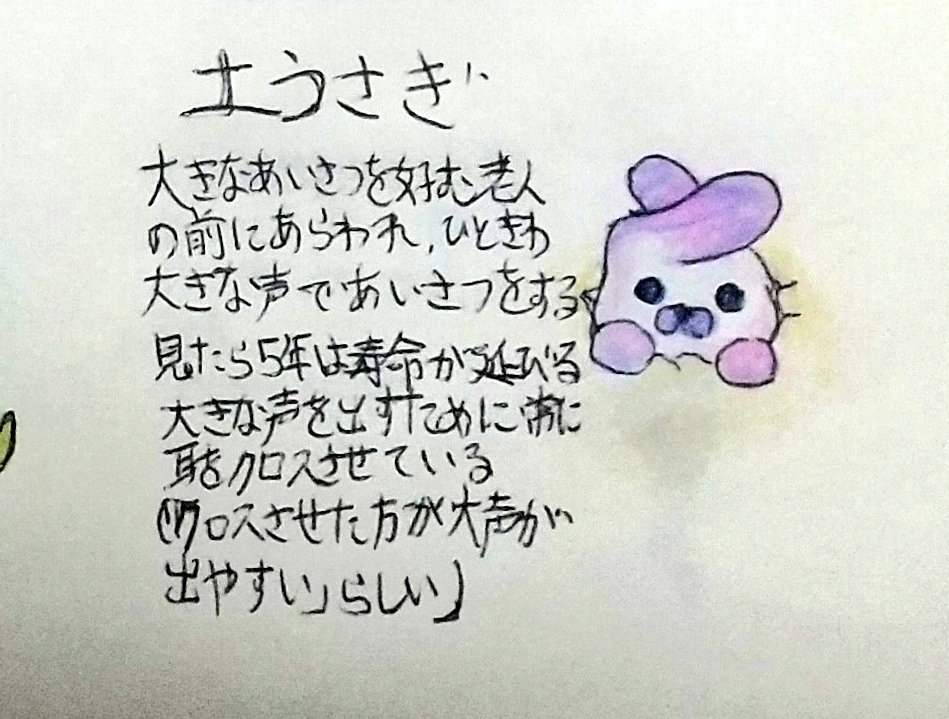 土うさぎ
大きなあいさつを好む老人
の前にあらわれ,ひときわ
大きな声であいさつをする
見たら5年は寿命が延びる
大きな声を出すために常に
耳をクロスさせている
(クロスさせた方が大声が
出やすい」らしい」